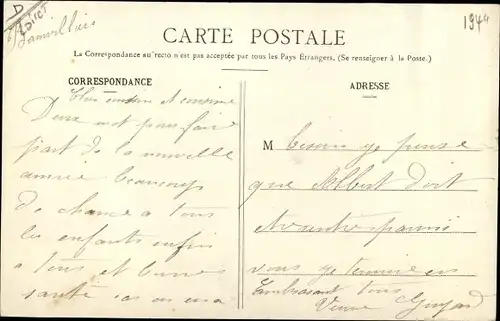 D
Loiret
1944
CARTE POSTALE
La Correspondance au recto n'est pas acceptée par tous les Pays Etrangers. (Se renseigner à la Poste.)
CORRESPONDANCE
cousin et cousine
Deux mot pour faire
part de la nouvelle
année beaucoup
de chance a tous
les enfants enfin
a tous et bonne
santé
ADRESSE
M cousin je pense
que Albert doit
parmi
vous je termine en
tous
Veuve